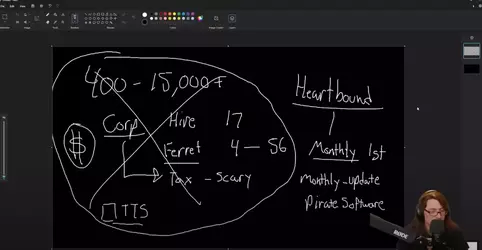 400 - 15,000+
Corp
Hire 17
$
Ferret 4 - 56
Tax - Scary
TTS
Heartbound
Monthly 1st
monthly-update
Pirate Software
RODE